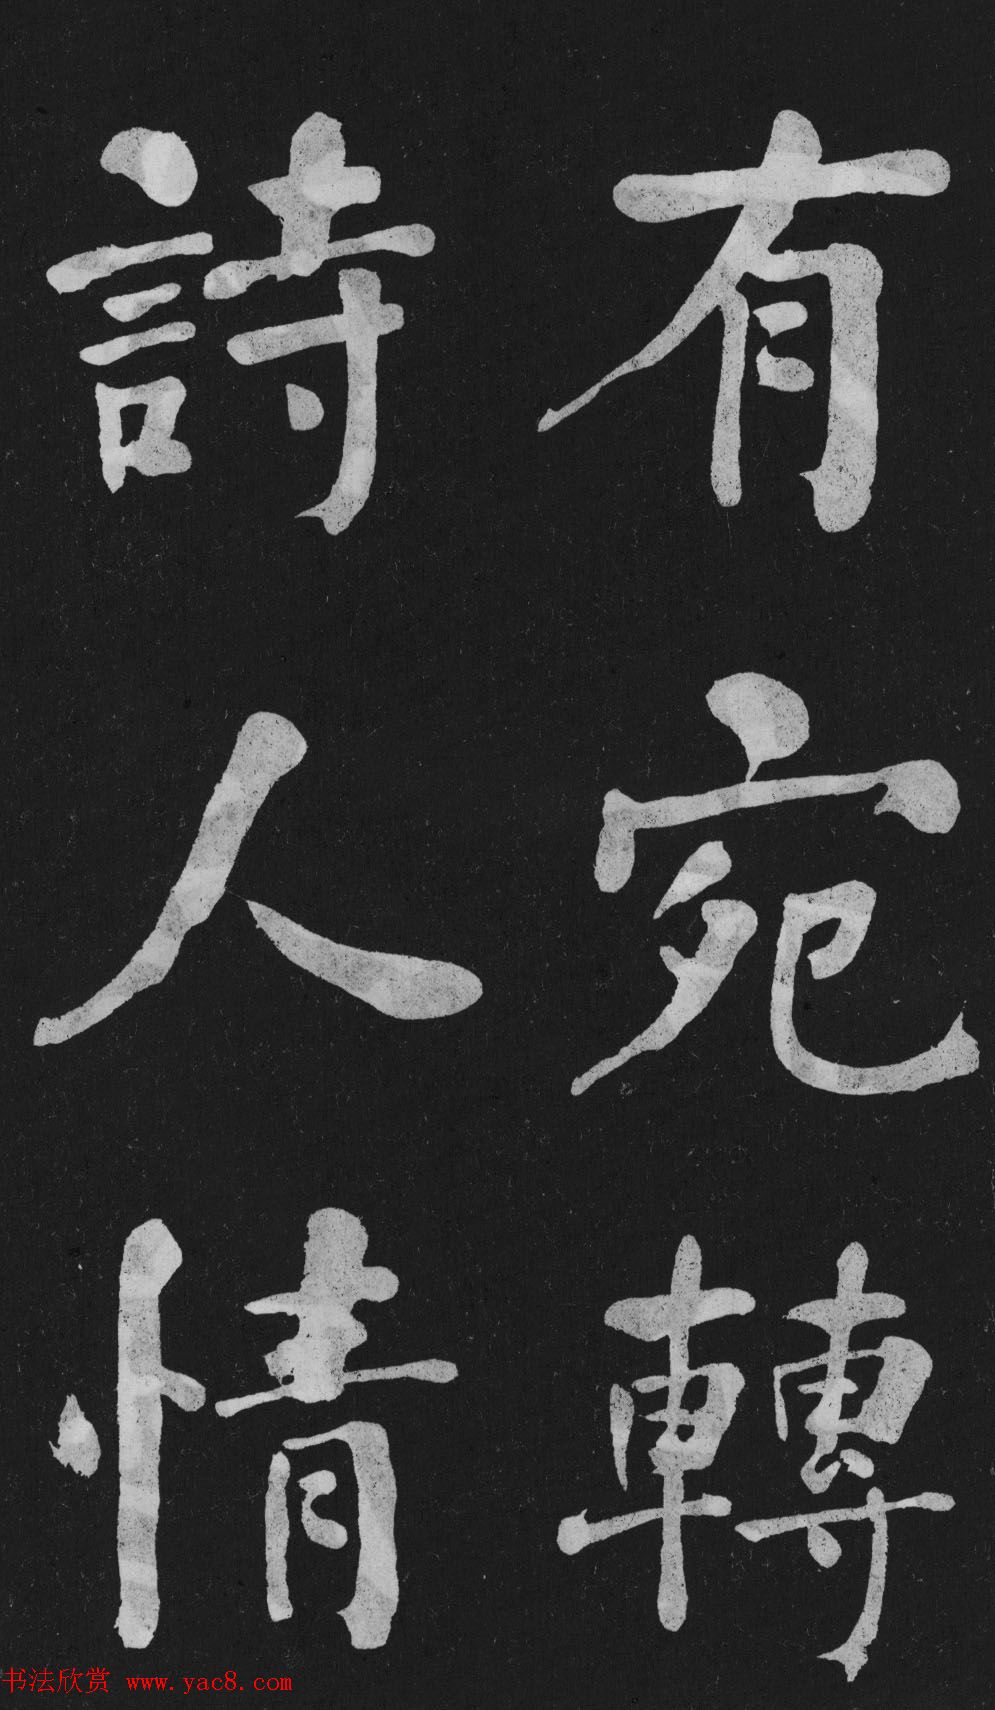 有宛轉
詩人情
书法欣赏 www.yac8.com